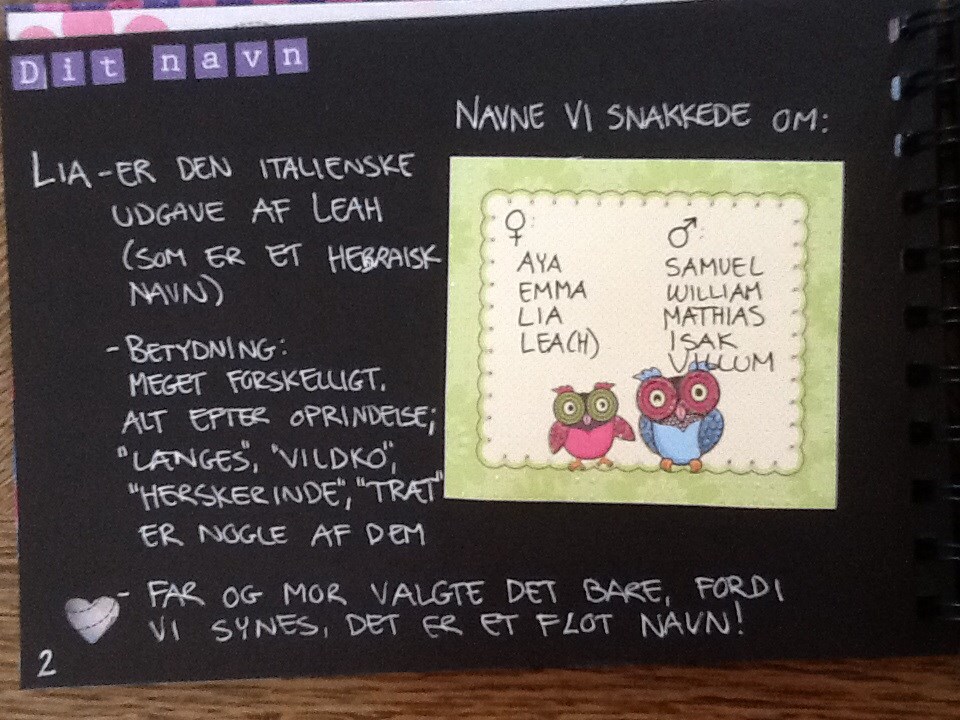 Dit navn
LIA - ER DEN ITALIENSKE
UDGAVE AF LEAH
(SOM ER ET HEBRAISK
NAVN)
- BETYDNING:
MEGET FORSKELLIGT.
ALT EFTER OPRINDELSE;
"LÆNGES", "VILDKO",
"HERSKERINDE", "TRÆT"
ER NOGLE AF DEM
- FAR OG MOR VALGTE DET BARE, FORDI
VI SYNES, DET ER ET FLOT NAVN!
2
NAVNE VI SNAKKEDE OM:
♀:
AYA
EMMA
LIA
LEA(H)
♂:
SAMUEL
WILLIAM
MATHIAS
ISAK
VILLUM